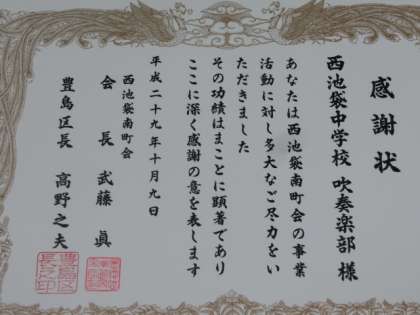 感謝状
西池袋中学校 吹奏楽部 様
あなたは西池袋南町会の事業
活動に対し多大なご尽力をい
ただきました
その功績はまことに顕著であり
ここに深く感謝の意を表します
平成二十九年十月九日
西池袋南町会
会長 武藤 眞
豊島区長 高野之夫
豊島区
長之印